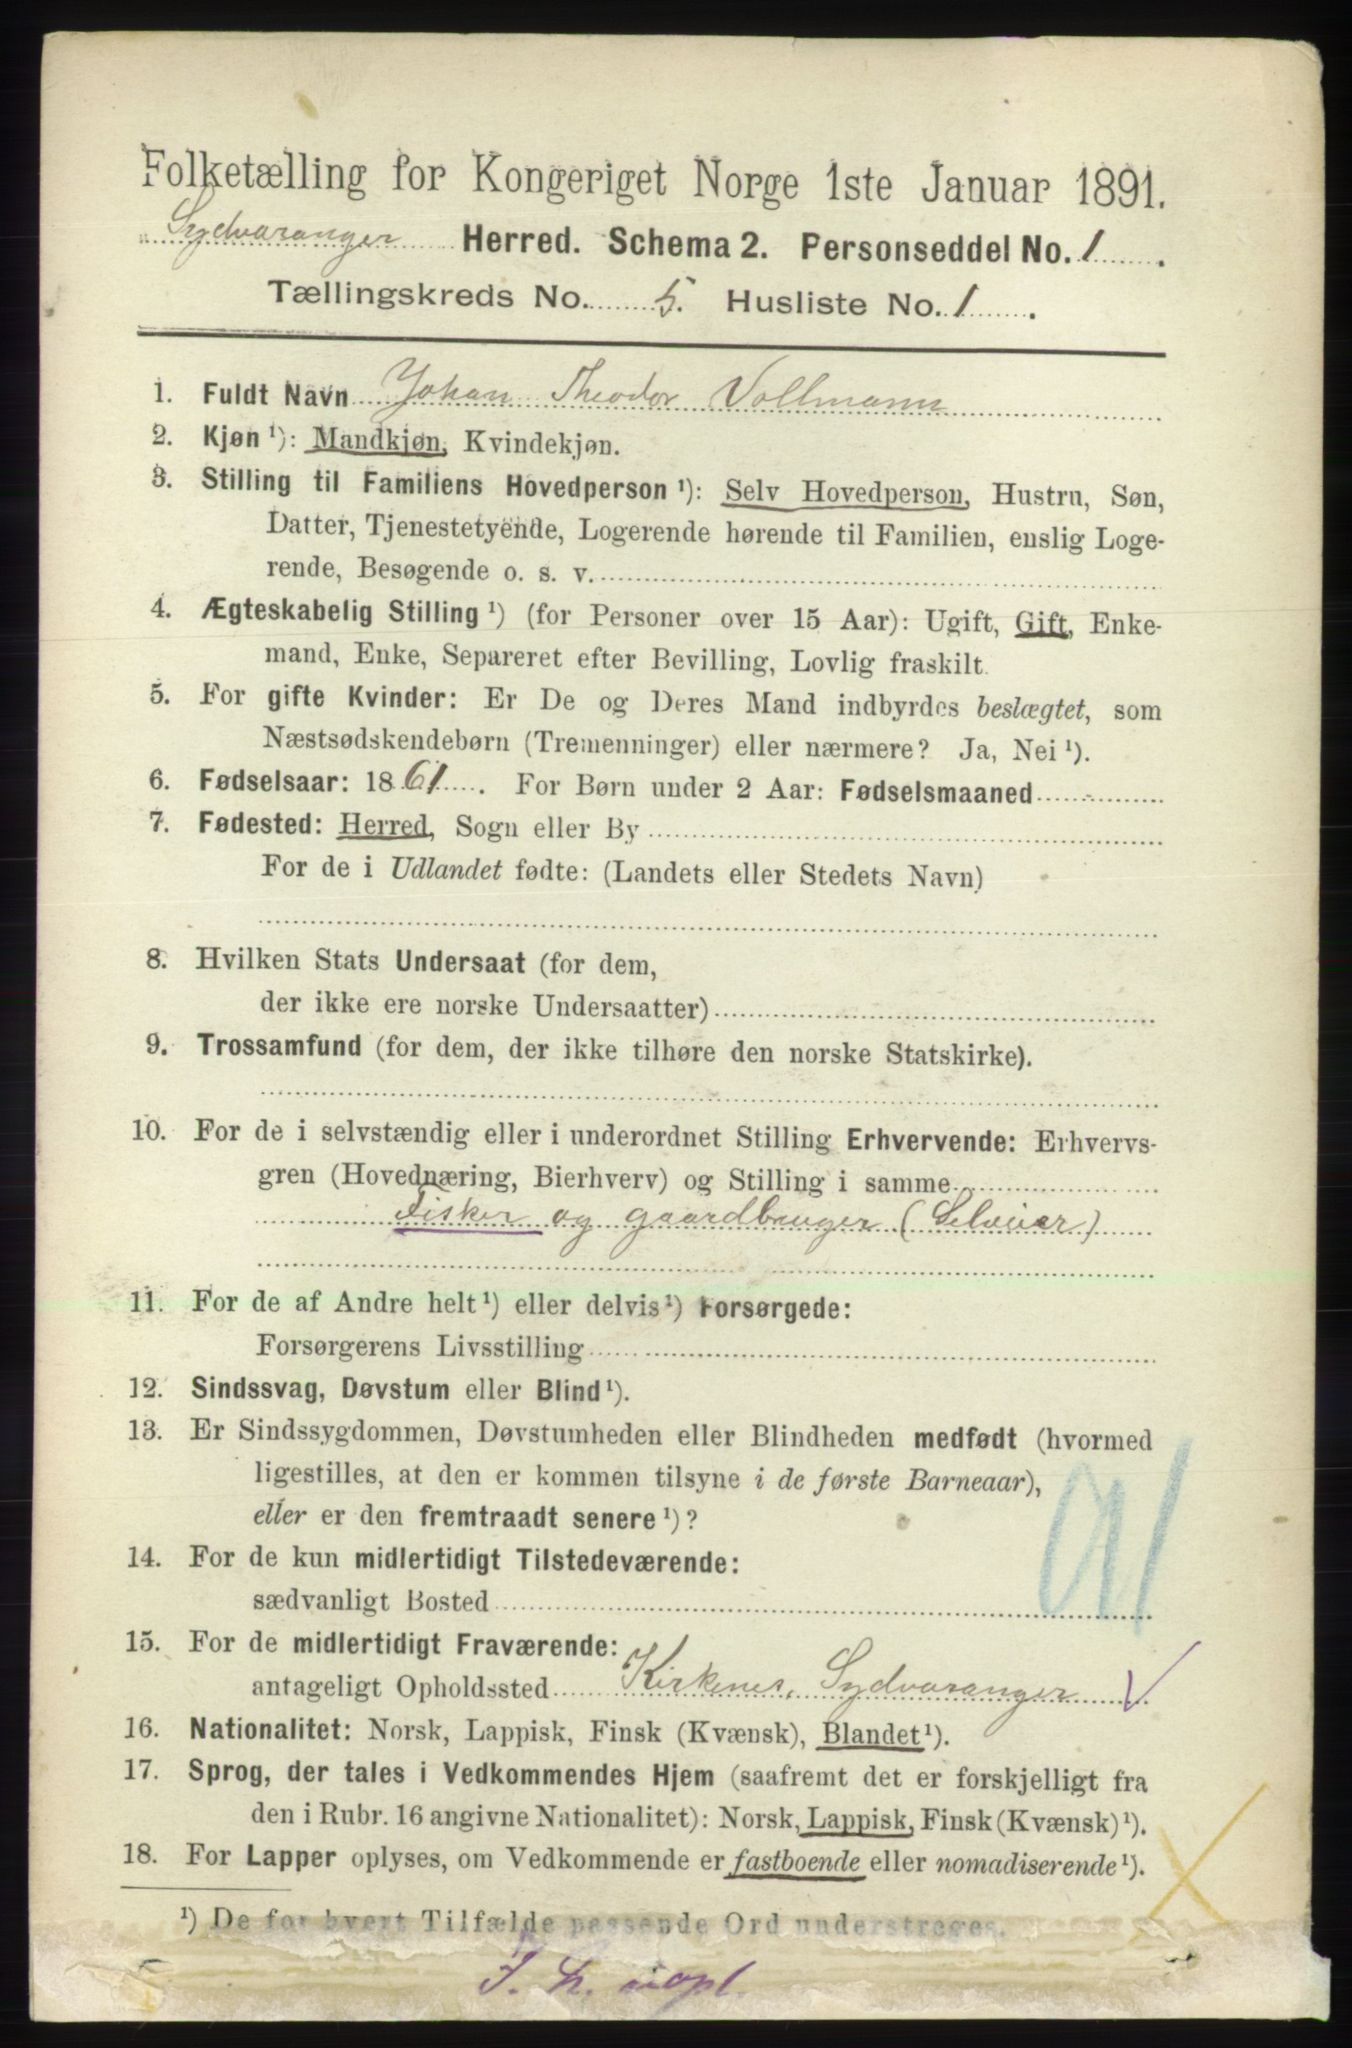 Folketælling for Kongeriget Norge 1ste Januar 1891.
Sydvaranger Herred. Schema 2. Personseddel No. 1.
Tællingskreds No. 5. Husliste No. 1.
1. Fuldt Navn Johan Theodor Vollmann
2. Kjøn ¹): Mandkjøn, Kvindekjøn.
3. Stilling til Familiens Hovedperson ¹): Selv Hovedperson, Hustru, Søn,
Datter, Tjenestetyende, Logerende hørende til Familien, enslig Loge-
rende, Besøgende o. s. v.
4. Ægteskabelig Stilling ¹) (for Personer over 15 Aar): Ugift, Gift, Enke-
mand, Enke, Separeret efter Bevilling, Lovlig fraskilt.
5. For gifte Kvinder: Er De og Deres Mand indbyrdes beslægtet, som
Næstsødskendebørn (Tremenninger) eller nærmere? Ja, Nei ¹).
6. Fødselsaar: 1861. For Børn under 2 Aar: Fødselsmaaned
7. Fødested: Herred, Sogn eller By
For de i Udlandet fødte: (Landets eller Stedets Navn)
8. Hvilken Stats Undersaat (for dem,
der ikke ere norske Undersaatter)
9. Trossamfund (for dem, der ikke tilhøre den norske Statskirke).
10. For de i selvstændig eller i underordnet Stilling Erhvervende: Erhvervs-
gren (Hovednæring, Bierhverv) og Stilling i samme
Fisker og gaardbruger (Selveier)
11. For de af Andre helt ¹) eller delvis ¹) Forsørgede:
Forsørgerens Livsstilling
12. Sindssvag, Døvstum eller Blind ¹).
13. Er Sindssygdommen, Døvstumheden eller Blindheden medfødt (hvormed
ligestilles, at den er kommen tilsyne i de første Barneaar),
eller er den fremtraadt senere ¹)?
91
14. For de kun midlertidigt Tilstedeværende:
sædvanligt Bosted
15. For de midlertidigt Fraværende:
antageligt Opholdssted Kirkenes, Sydvaranger
16. Nationalitet: Norsk, Lappisk, Finsk (Kvænsk), Blandet ¹).
17. Sprog, der tales i Vedkommendes Hjem (saafremt det er forskjelligt fra
den i Rubr. 16 angivne Nationalitet): Norsk, Lappisk, Finsk (Kvænsk) ¹).
18. For Lapper oplyses, om Vedkommende er fastboende eller nomadiserende ¹).
¹) De for hvert Tilfælde passende Ord understreges.